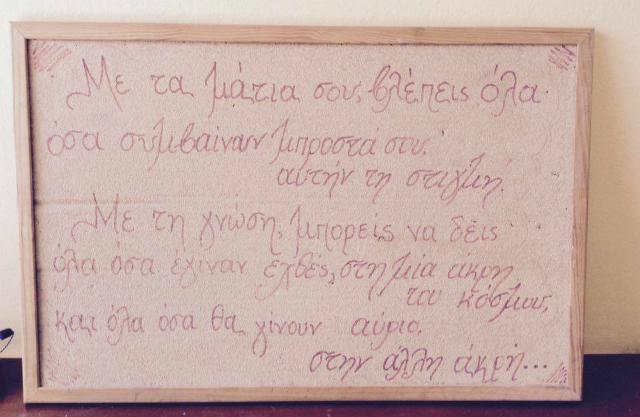 Με τα μάτια σου, βλέπεις όλα
όσα συμβαίνουν μπροστά σου.
αυτήν τη στιγμή.
Με τη γνώση, μπορείς να δεις
όλα όσα έγιναν εχθές, στη μία άκρη
του κόσμου,
και όλα όσα θα γίνουν αύριο,
στην άλλη άκρη...